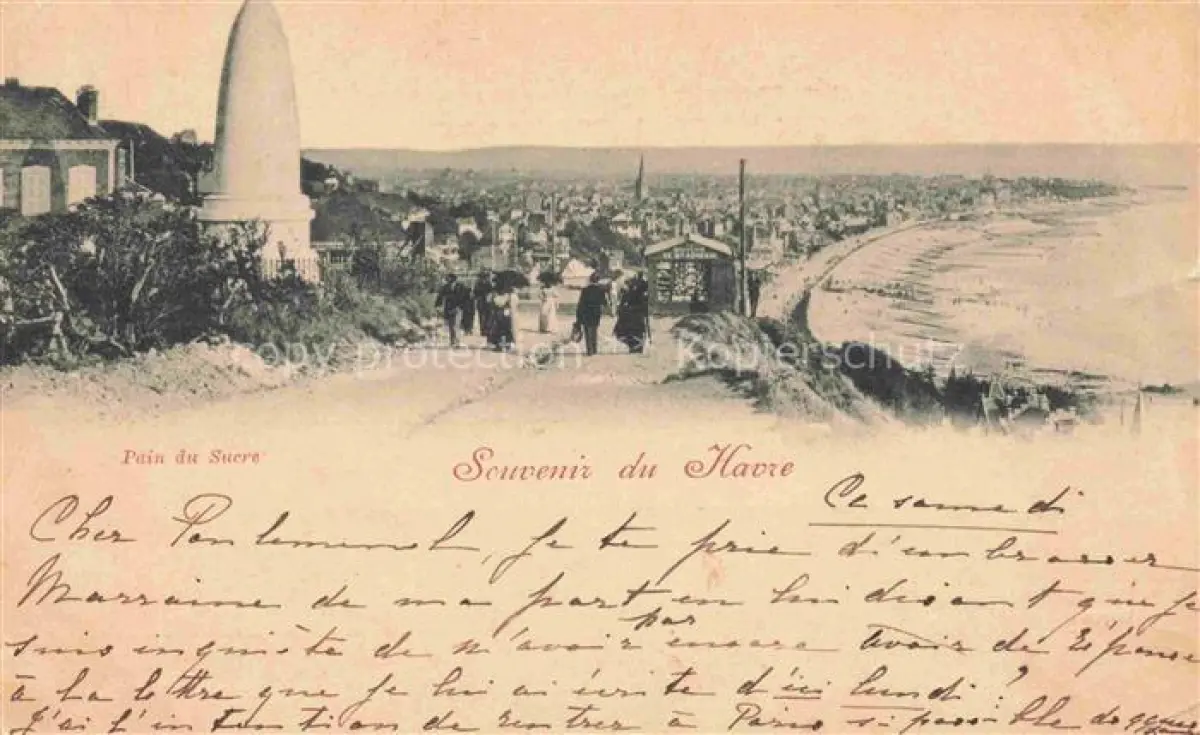 copy protection Kopierschutz
Pain du Sucre
Souvenir du Havre
Ce samedi
Cher je te prie d'embrasser
Marraine de ma part en lui disant que je
suis inquiète de n'avoir pas encore avoir de réponse
à la lettre que je lui ai écrite d'ici lundi ?
J'ai l'intention de rentrer à Paris si possible